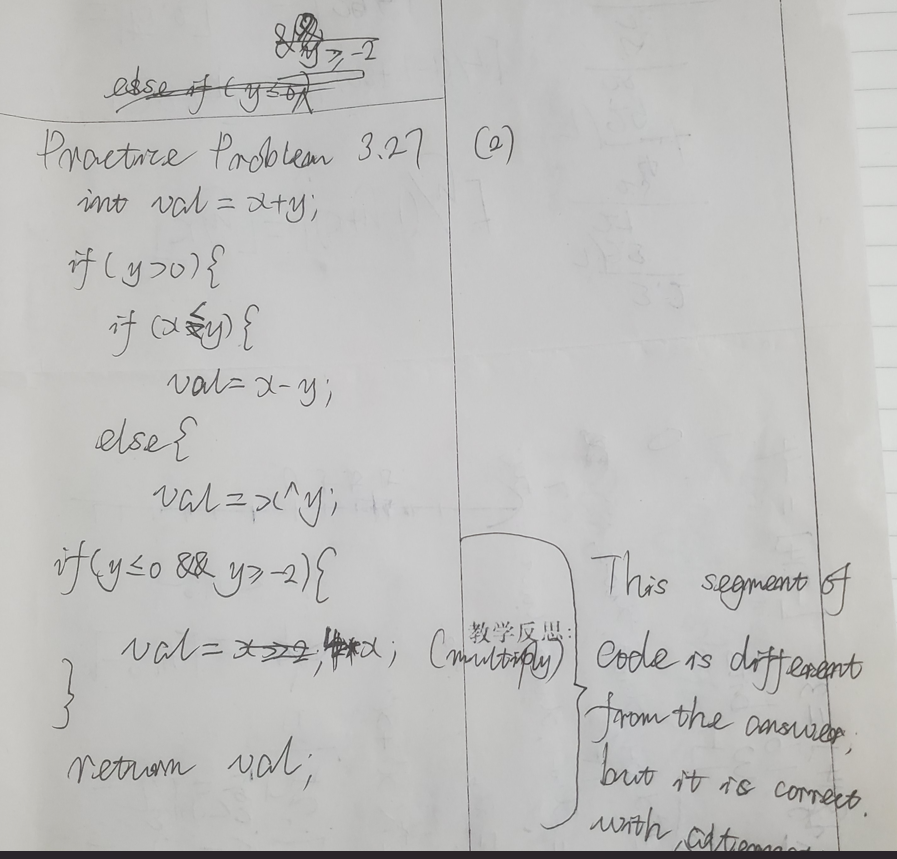 && y ≥ -2
else if (y ≤ 0)
Practice Problem 3.27 (2)
int val = x+y;
if (y>0){
if (x≤y){
val = x-y;
else{
val = x^y;
if(y≤0 && y≥-2){
val = x>>2; 4*x; (multiply)
}
return val;
教学反思:
This segment of
code is different
from the answer,
but it is correct.
with